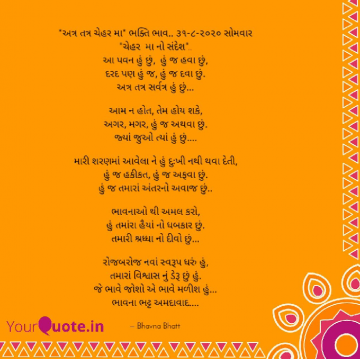 "અત્ર તત્ર ચેહર મા" ભક્તિ ભાવ.. ૩૧-૮-૨૦૨૦ સોમવાર
"ચેહર મા નો સંદેશ".
આ પવન હું છું, હું જ હવા છું,
દરદ પણ હું જ, હું જ દવા છું.
અત્ર તત્ર સર્વત્ર હું છું...
આમ ન હોત, તેમ હોય શકે,
અગર, મગર, હું જ અથવા છું.
જ્યાં જુઓ ત્યાં હું છું....
મારી શરણમાં આવેલા ને હું દુઃખી નથી થવા દેતી,
હું જ હકીકત, હું જ અફવા છું.
હું જ તમારાં અંતરનો અવાજ છું..
ભાવનાઓ થી અમલ કરો,
હું તમાંરા હૈયાં નો ધબકાર છું.
તમારી શ્રધ્ધા નો દીવો છું...
રોજબરોજ નવાં સ્વરૂપ ધરું હું,
તમારાં વિશ્વાસ નું ડેરૂ છું હું.
જે ભાવે જોશો એ ભાવે મળીશ હું...
ભાવના ભટ્ટ અમદાવાદ....
-- Bhavna Bhatt
YourQuote.in